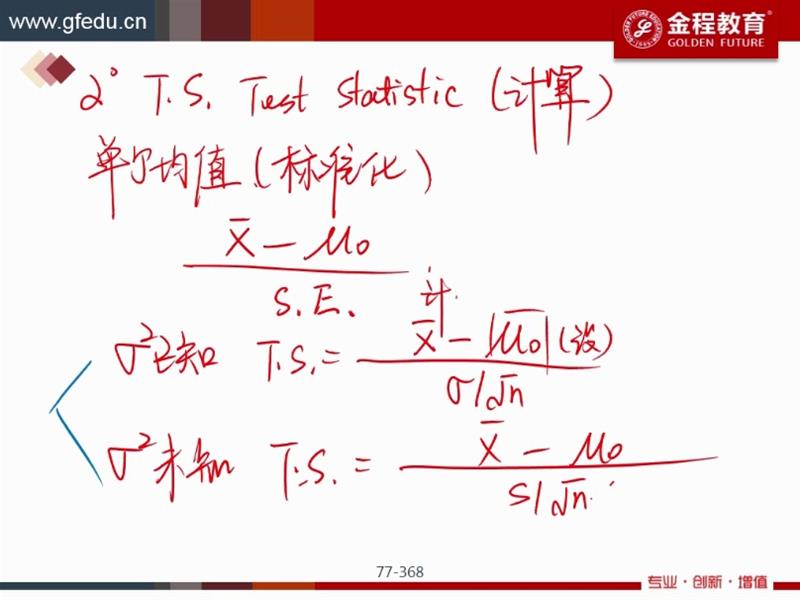 www.gfedu.cn
金程教育
GOLDEN FUTURE
2° T.S. Test Statistic (计算)
单个均值 (标准化)
X̄ - μ₀
S.E.
计
σ²已知 T.S. = X̄ - |μ₀| (设)
σ/√n
σ²未知 T.S. = X̄ - μ₀
S/√n
77-368
专业·创新·增值